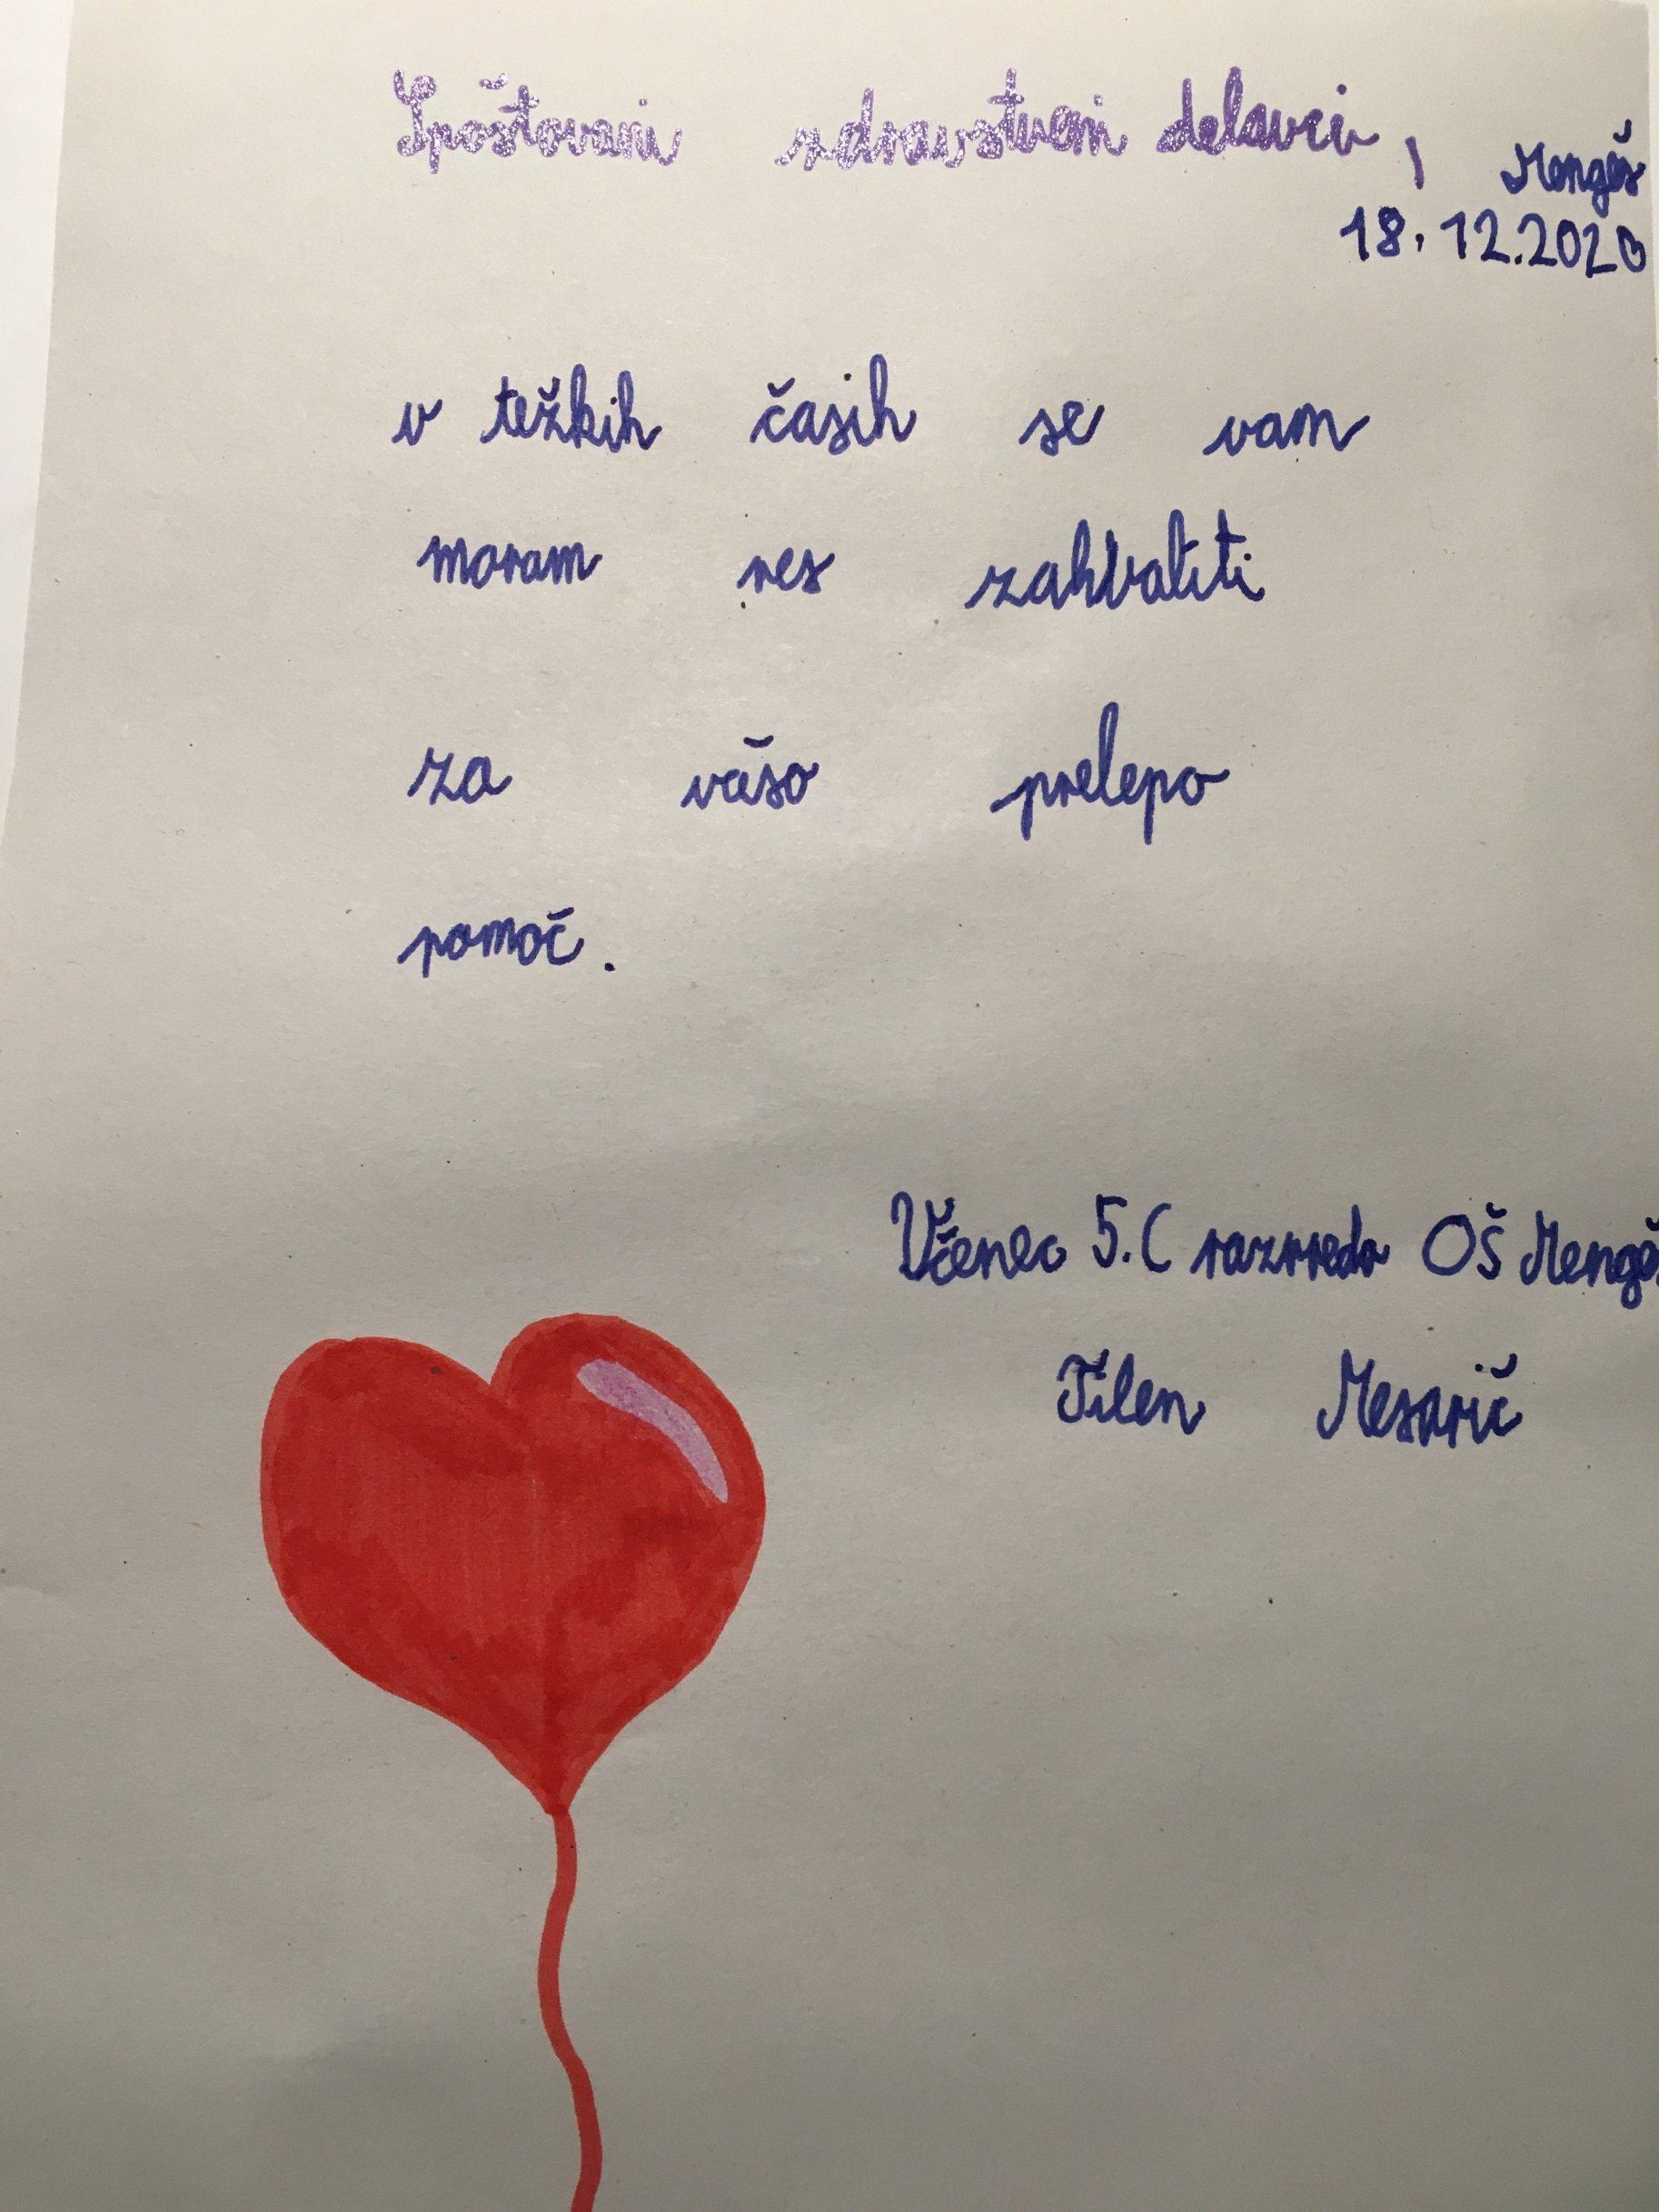 Spoštovani zdravstveni delavci,
Mengeš
18. 12. 2020
v težkih časih se vam
moram res zahvaliti
za vašo prelepo
pomoč.
Učenec 5.C razreda OŠ Mengeš
Tilen Mesarič